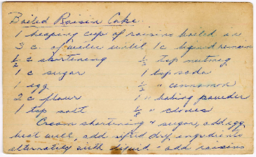 Boiled Raisin Cake
1 heaping cup of raisins boiled in
2 c. of water until 1c liquid remain
½ c shortening ½ tsp nutmeg
1 c sugar 1 tsp soda
1 egg ½ " cinnamon
2 c flour 1 " baking powder
1 tsp salt ½ " cloves
Cream shortening & sugar, add egg,
beat well, add sifted dry ingredients
alternately with liquid - add raisins